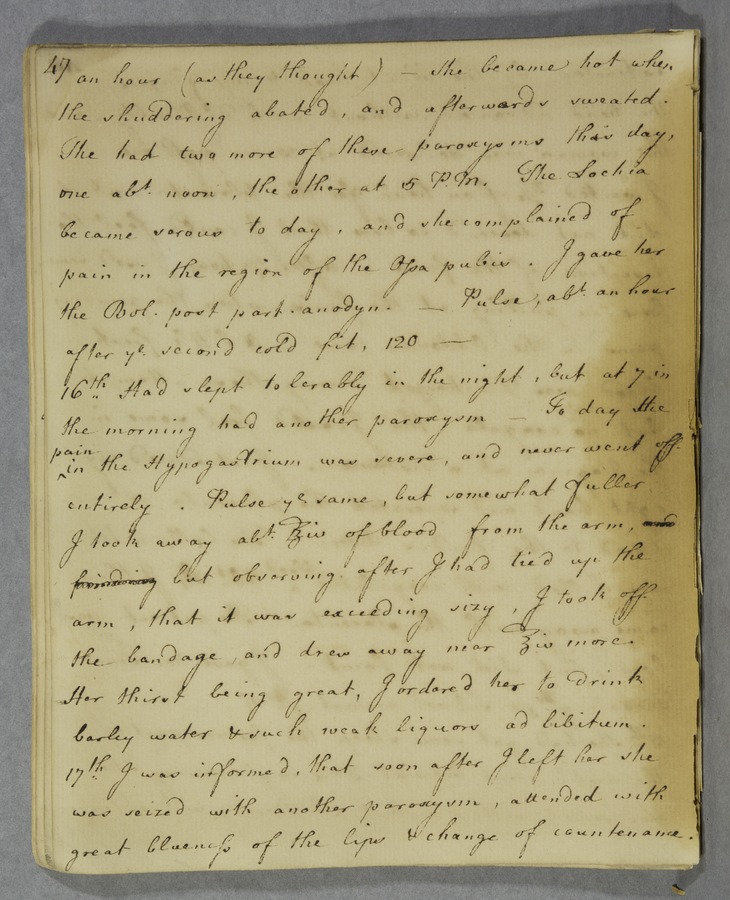 47 an hour (as they thought) — she became hot when
the shuddering abated, and afterwards sweated.
She had two more of these paroxysms this day,
one abt. noon, the other at 5 P.M. The Lochia
became serous to day, and she complained of
pain in the region of the Ossa pubis. I gave her
the Bol. post part. anodyn. — Pulse, abt. an hour
after ye second cold fit, 120 —
16th. Had slept tolerably in the night, but at 7 in
the morning had another paroxysm — To day the
pain
^in the Hypogastrium was severe, and never went off
entirely. Pulse ye same, but somewhat fuller
I took away abt. ℥iv of blood from the arm, and
but observing after I had tied up the
arm, that it was exceeding sizy, I took off
the bandage, and drew away near ℥iv more.
Her thirst being great, I ordered her to drink
barley water & such weak liquors ad libitum.
17th. I was informed, that soon after I left her she
was seized with another paroxysm, attended with
great blueness of the lips & change of countenance.